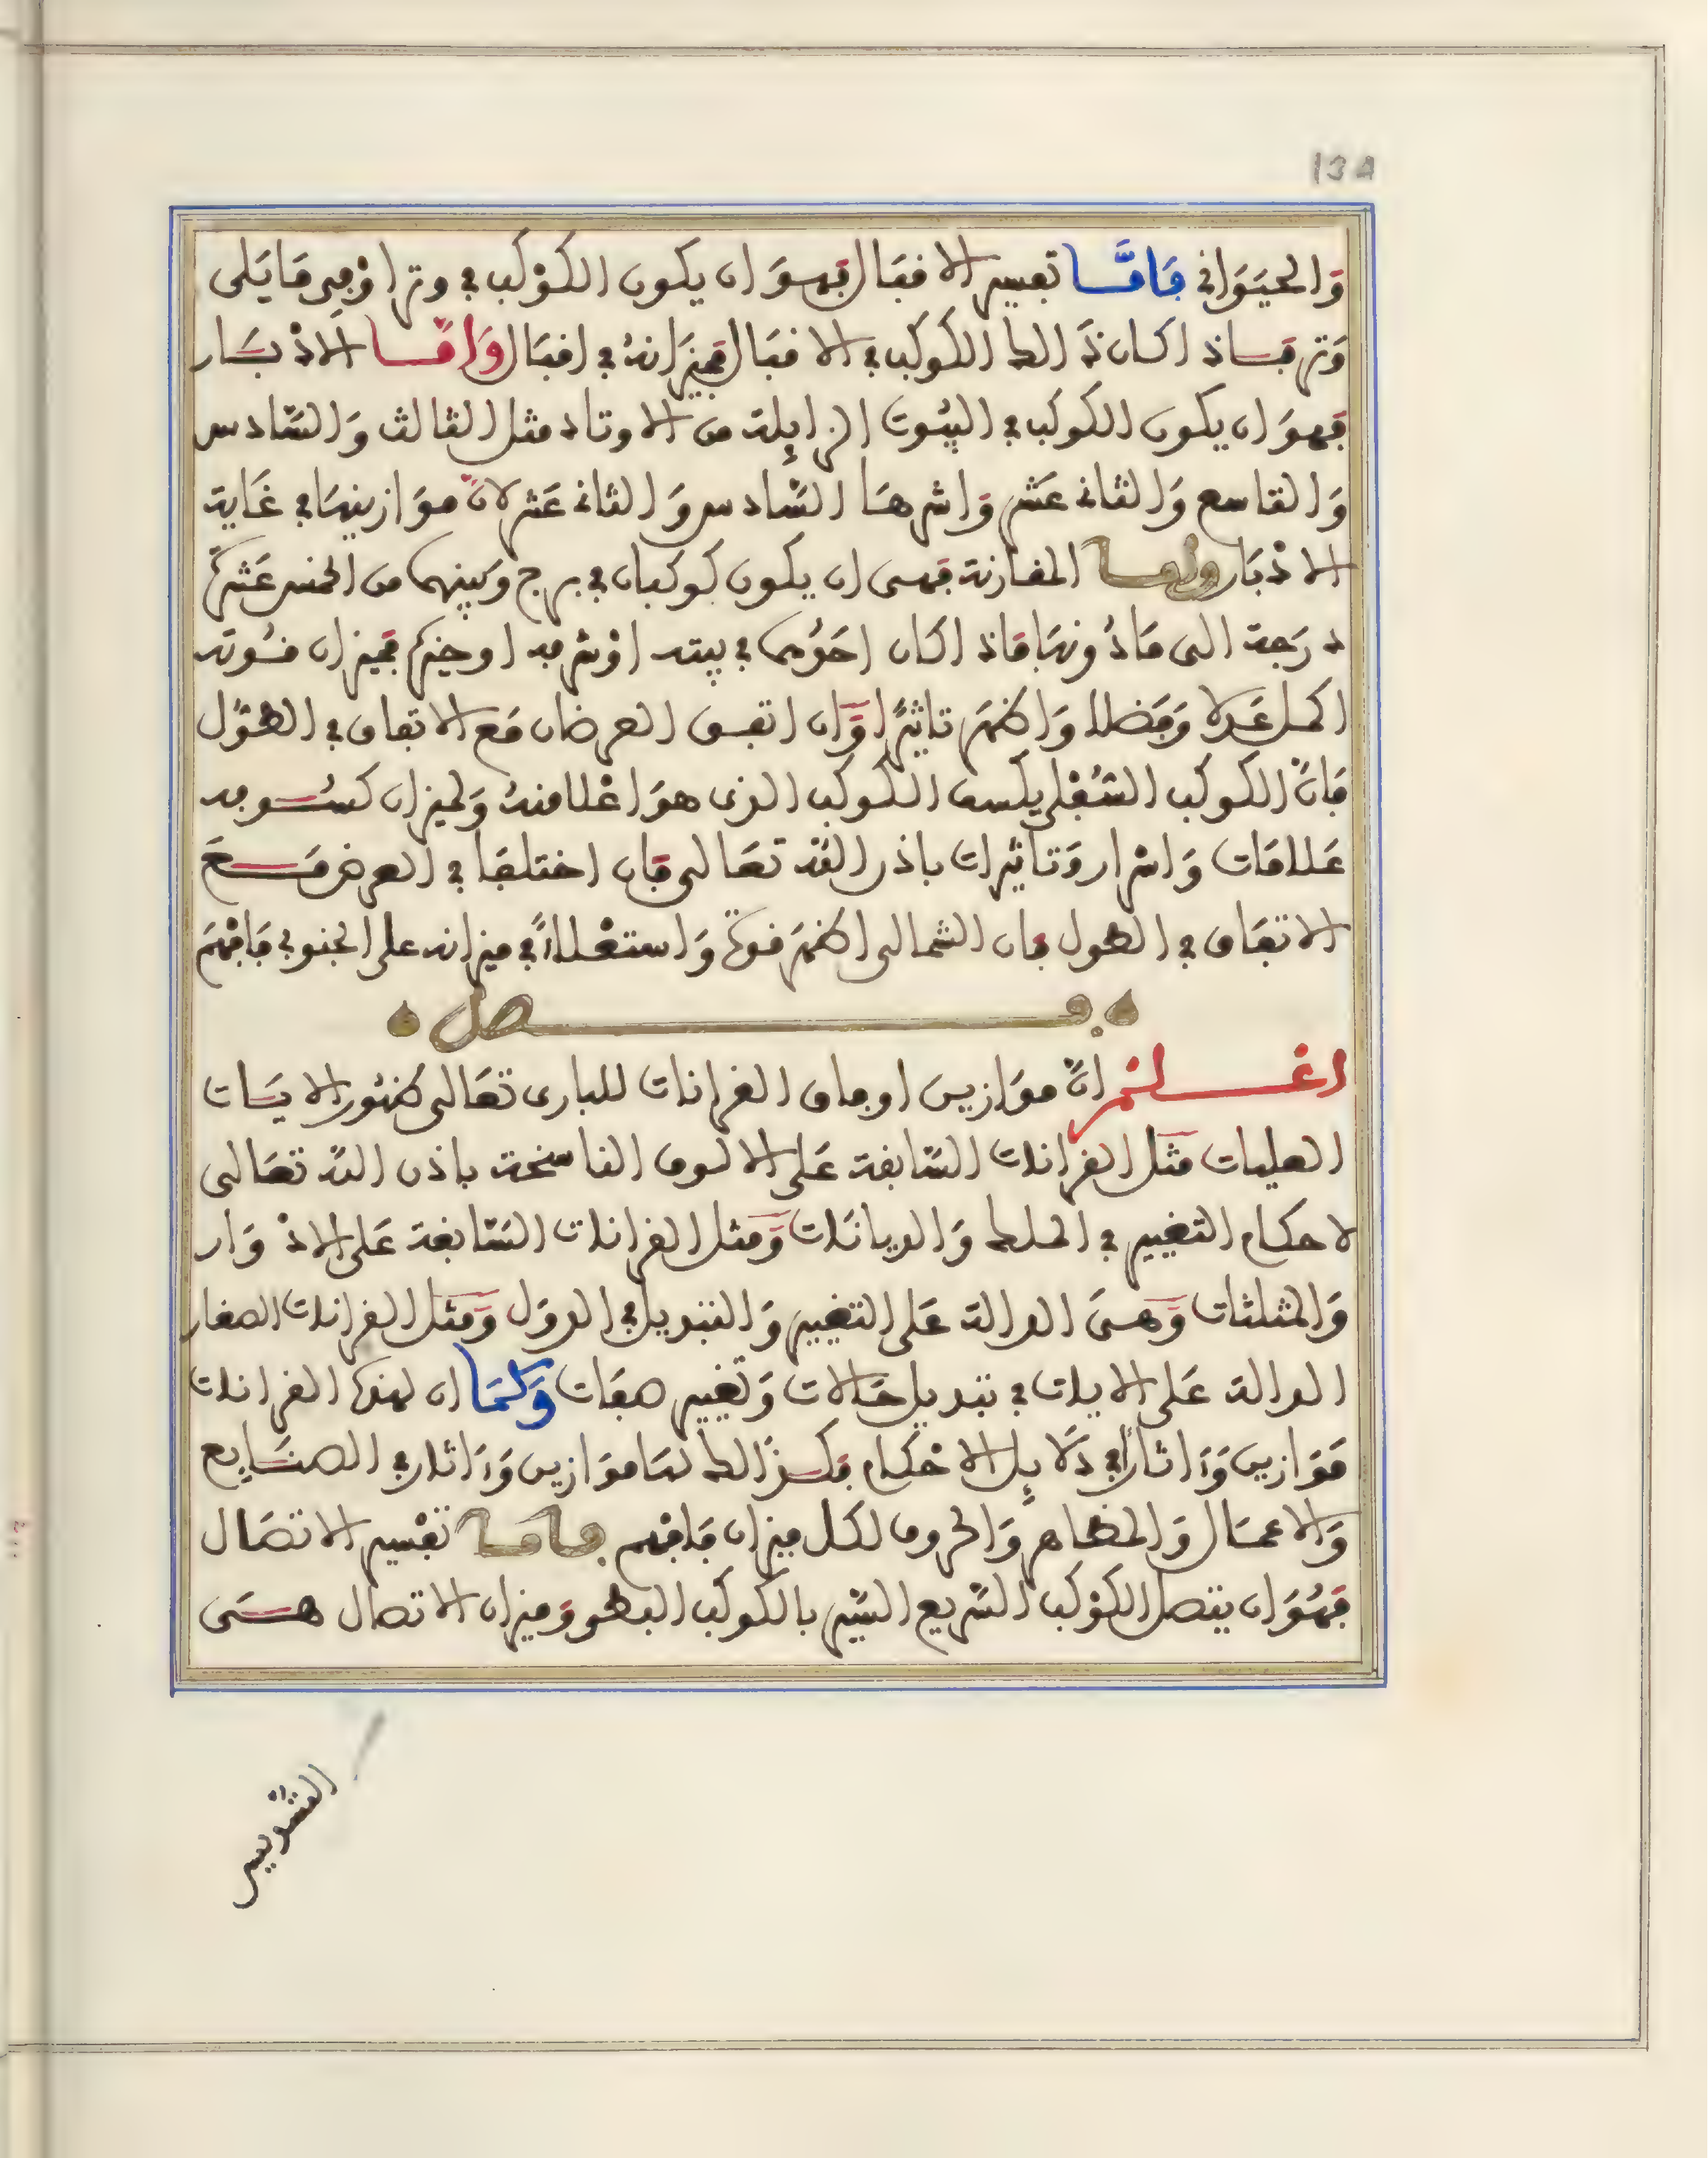 134
وَالحيَوَانى فَامَّا تفسير الاقبَال فهوَ ان يكون الكوْكب في وتد اوْ فى مَا يَلى
وَتد فاذا كان ذَالك الكوكب في الاقبَال فميزَانهُ في اقبَال وَامَّا الادْبَار
فهوَ ان يكون الكوكب في البيُوت الزايلة من الاوتاد مثل الثالث وَالسَّادس
وَالتاسع وَالثانى عَشر وَاشرهَا السَّادس وَالثانى عَشر لانَّ موَازينهَا في غَاية
الادْبَار وامَا المقارنة فهى ان يكون كوكبان في برج وَبينهما من الخمس عَشرة
درَجة الى مَا دُونهَا فاذا كان احَدُهما في بيته اوْ شرفه اوحيّزه فميزان قوته
اكمل عَدلا وَفضلا وَاظهَر تاثيرًا وَان اتفق العرضان مَع الاتفاق في الطوْل
فانَّ الكوكب السُّفلى يكسف الكوكب الذى هوَ اعْلا منهُ وَلميزان كسُوفه
عَلامَات وَاسرار وَتاثيرات باذن اللّه تعَالى فان اختلفا في العرض مَعَ
الاتفَاق في الطول فان الشمالى اظهَر قوة وَاستعْلاءً في ميزانه على الجنوبى فافهَم
فصل
اعْلمْ انَّ موَازين اوفاق القرانات للبارى تعَالى ظهُور الايَات
العليات مثل القرانات السَّابقة عَلى الالوف الناسخة باذن اللّه تعَالى
لاحكام التغيير في الملك وَالديانات وَمثل القرانات السَّابقة عَلى الادْوَار
وَالمثلثات وَهىَ الدالة عَلى التغيير وَالتبديل في الدوَل وَمثل القرانات الصغار
الدالة عَلى الايات في تبديل حَالات وَتغيير صفَات وَكمَا ان لهذه القرانات
مَوَازين وَءاثارًا في دَلايل الاحْكام فكذَالك لهَا موَازين وَءاثار في الصنَايع
وَالاعمَال وَالمظاهر وَالحروف لكل ميزان فافهم فامَا تفْسير الاتصَال
فهُوَ ان يتصل الكوْكب السَّريع السَّير بالكوكب البطىء وَميزان الاتصال هىَ
التسْديس